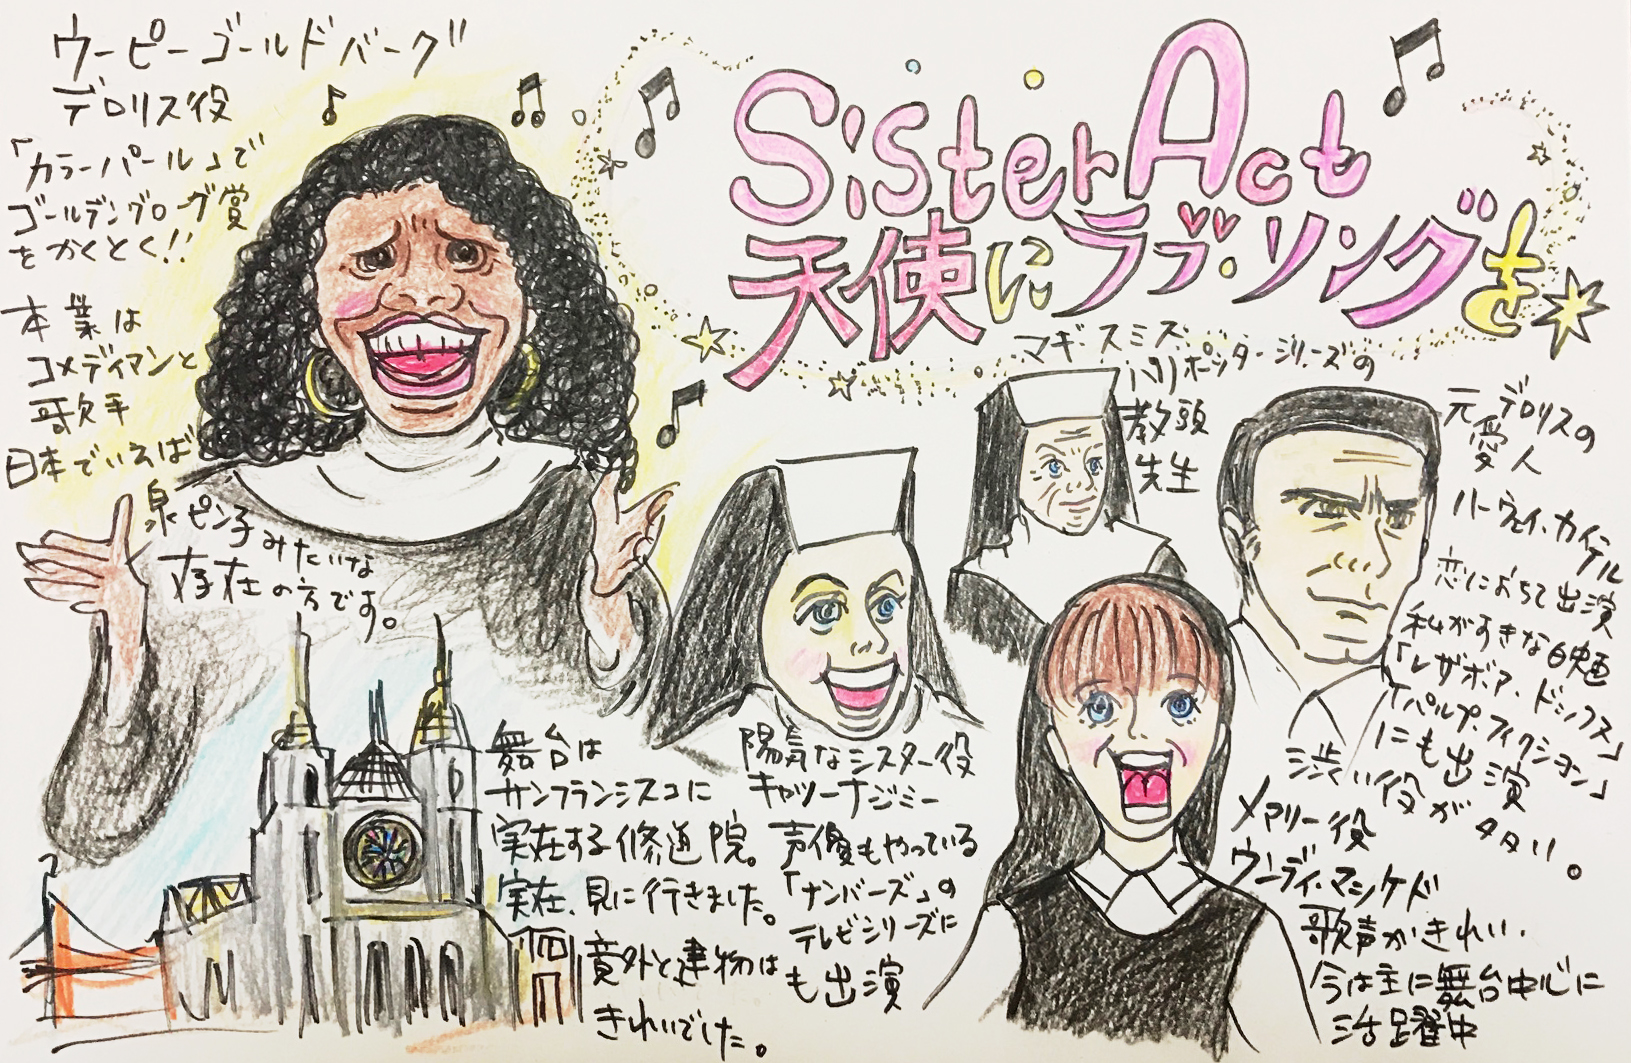 ウーピーゴールドバーグ
デロリス役
「カラーパール」で
ゴールデングローヴ賞
をかくとく!!
本業は
コメディマンと
歌手
日本でいえば
泉ピン子みたいな
存在の方です。
Sister Act
天使にラブ・ソングを
マギースミス
ハリポッターシリーズの
教頭
先生
元デロリスの
愛人
ハーヴェイ・カイテル
恋におちて出演
私がすきな映画
「レザボア・ドックス」
「パルプ・フィクション」
にも出演
渋い役が多い。
舞台は
サンフランシスコに
実在する修道院。
実在、見に行きました。
意外と建物は
きれいでした。
陽気なシスター役
キャシーナジミー
声優もやっている
「ナンバーズ」の
テレビシリーズに
も出演
メアリー役
ウーディ・マシケド
歌声がきれい.
今は主に舞台中心に
活躍中